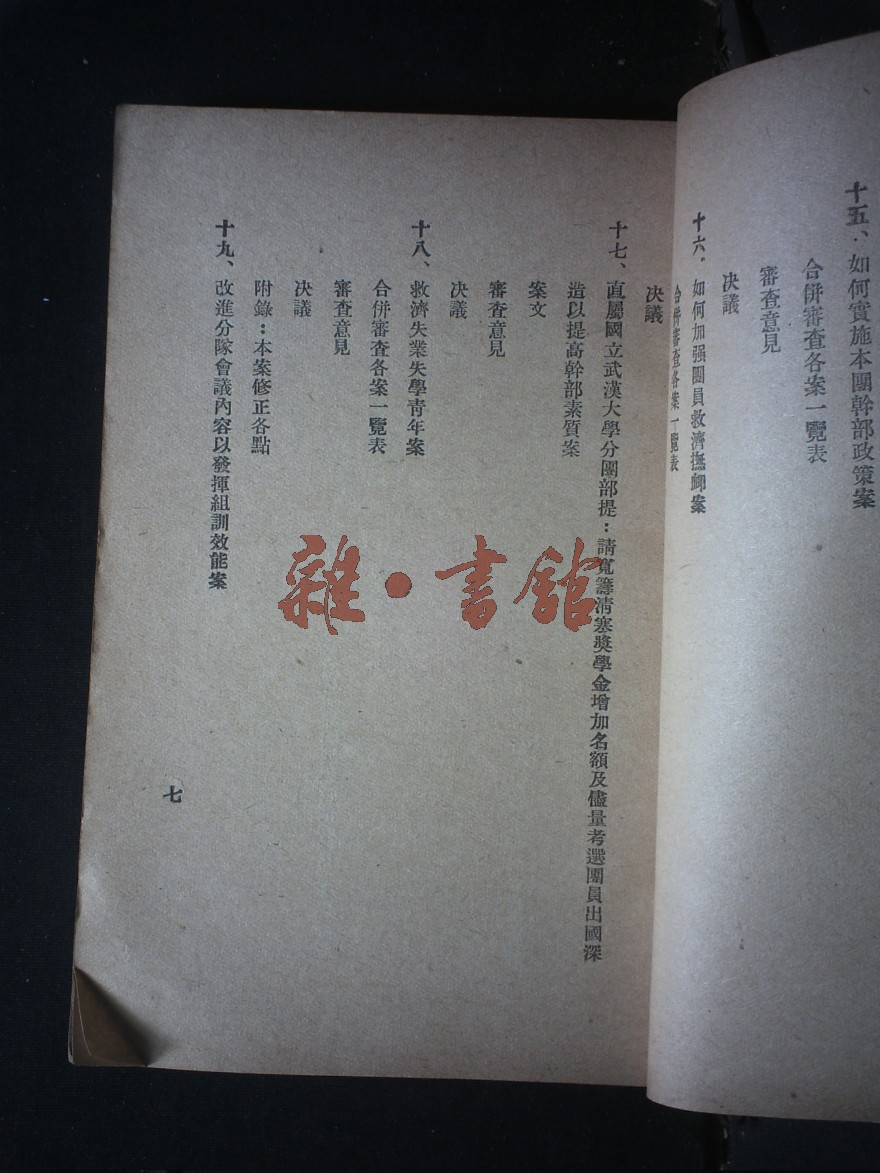 十五、如何實施本團幹部政策案
合併審查各案一覽表
審查意見
決議
十六、如何加强團員救濟撫卹案
合併審查各案一覽表
決議
十七、直屬國立武漢大學分團部提：請寬籌清寒獎學金增加名額及儘量考選團員出國深
造以提高幹部素質案
案文
審查意見
決議
十八、救濟失業失學靑年案
合併審查各案一覽表
審查意見
決議
附錄：本案修正各點
十九、改進分隊會議內容以發揮組訓效能案
七
雜·書館